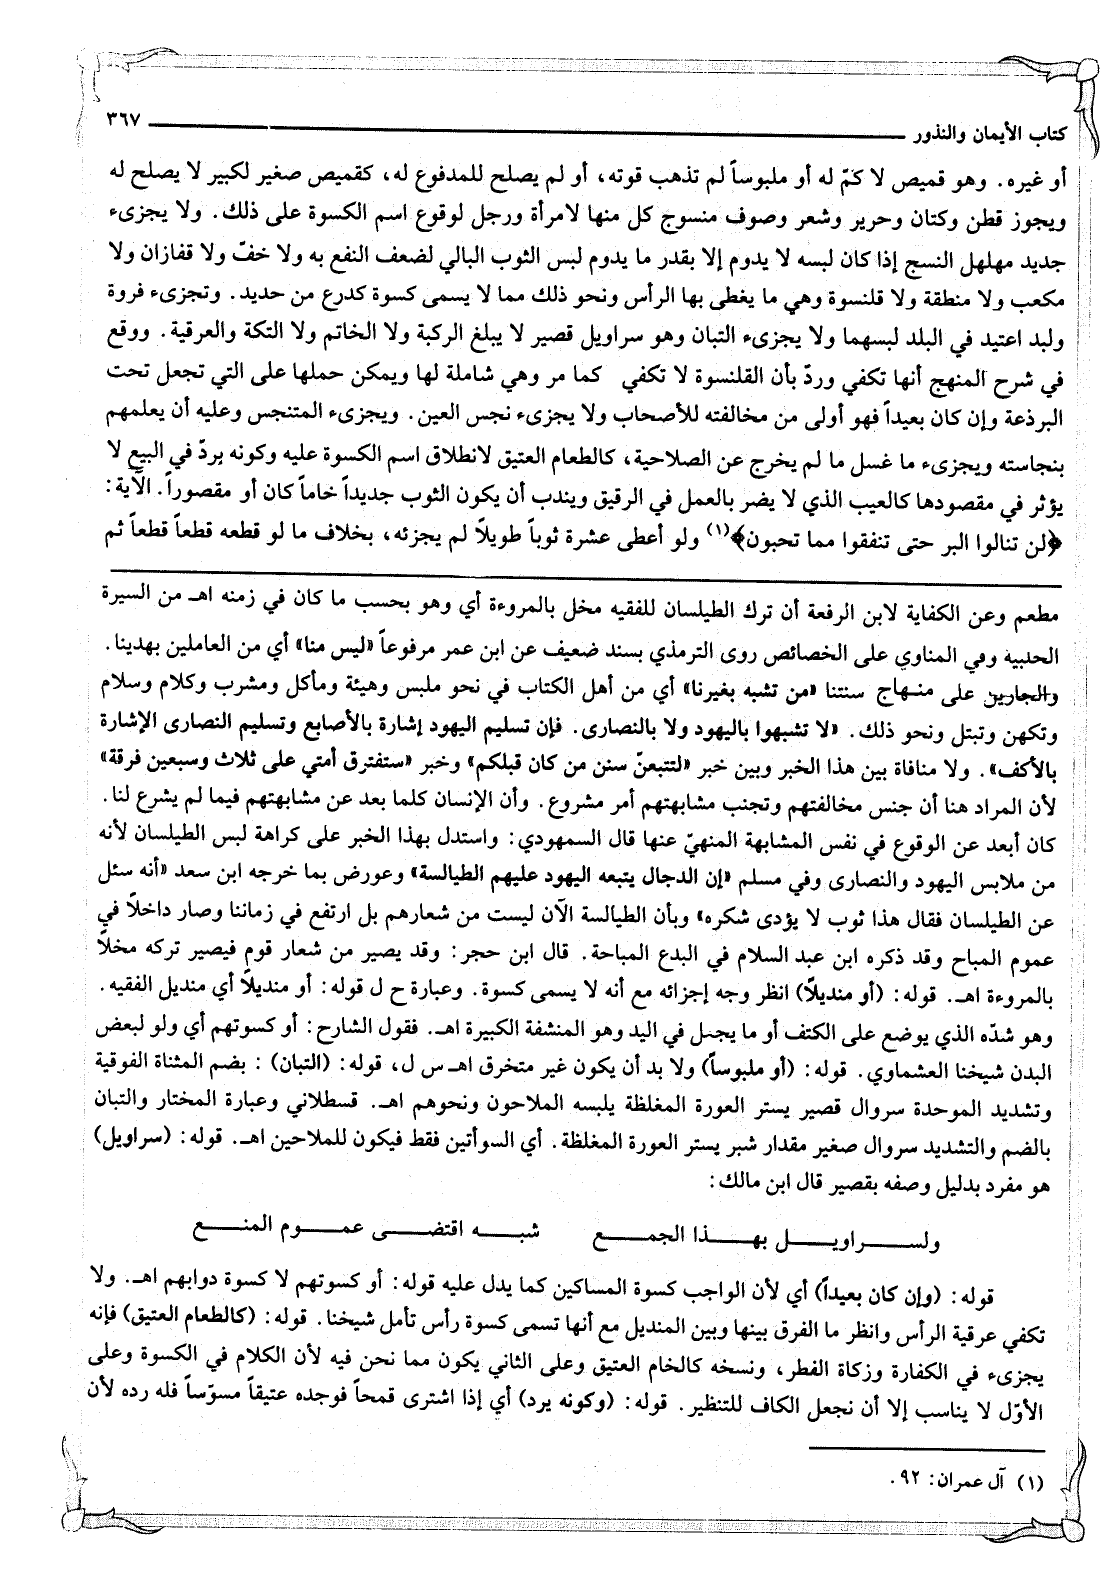 كتاب الأيمان والنذور ٣٦٧
أو غيره. وهو قميص لا كمّ له أو ملبوساً لم تذهب قوته، أو لم يصلح للمدفوع له، كقميص صغير لكبير لا يصلح له
ويجوز قطن وكتان وحرير وشعر وصوف منسوج كل منها لامرأة ورجل لوقوع اسم الكسوة على ذلك. ولا يجزىء
جديد مهلهل النسج إذا كان لبسه لا يدوم إلا بقدر ما يدوم لبس الثوب البالي لضعف النفع به ولا خفّ ولا قفازان ولا
مكعب ولا منطقة ولا قلنسوة وهي ما يغطى بها الرأس ونحو ذلك مما لا يسمى كسوة كدرع من حديد. وتجزىء فروة
ولبد اعتيد في البلد لبسهما ولا يجزىء التبان وهو سراويل قصير لا يبلغ الركبة ولا الخاتم ولا التكة والعرقية. ووقع
في شرح المنهج أنها تكفي وردّ بأن القلنسوة لا تكفي كما مر وهي شاملة لها ويمكن حملها على التي تجعل تحت
البرذعة وإن كان بعيداً فهو أولى من مخالفته للأصحاب ولا يجزىء نجس العين. ويجزىء المتنجس وعليه أن يعلمهم
بنجاسته ويجزىء ما غسل ما لم يخرج عن الصلاحية، كالطعام العتيق لانطلاق اسم الكسوة عليه وكونه يردّ في البيع لا
يؤثر في مقصودها كالعيب الذي لا يضر بالعمل في الرقيق ويندب أن يكون الثوب جديداً خاماً كان أو مقصوراً. الآية:
﴿لن تنالوا البر حتى تنفقوا مما تحبون﴾(١) ولو أعطى عشرة ثوباً طويلاً لم يجزئه، بخلاف ما لو قطعه قطعاً قطعاً ثم
مطعم وعن الكفاية لابن الرفعة أن ترك الطيلسان للفقيه مخل بالمروءة أي وهو بحسب ما كان في زمنه اهـ من السيرة
الحلبيه وفي المناوي على الخصائص روى الترمذي بسند ضعيف عن ابن عمر مرفوعاً «ليس منا» أي من العاملين بهدينا.
والجارين على منهاج سنتنا «من تشبه بغيرنا» أي من أهل الكتاب في نحو ملبس وهيئة ومأكل ومشرب وكلام وسلام
وتكهن وتبتل ونحو ذلك. «لا تشبهوا باليهود ولا بالنصارى. فإن تسليم اليهود إشارة بالأصابع وتسليم النصارى الإشارة
بالأكف». ولا منافاة بين هذا الخبر وبين خبر «لتتبعنّ سنن من كان قبلكم» وخبر «ستفترق أمتي على ثلاث وسبعين فرقة»
لأن المراد هنا أن جنس مخالفتهم وتجنب مشابهتهم أمر مشروع. وأن الإنسان كلما بعد عن مشابهتهم فيما لم يشرع لنا.
كان أبعد عن الوقوع في نفس المشابهة المنهيّ عنها قال السمهودي: واستدل بهذا الخبر على كراهة لبس الطيلسان لأنه
من ملابس اليهود والنصارى وفي مسلم «إن الدجال يتبعه اليهود عليهم الطيالسة» وعورض بما خرجه ابن سعد «أنه سئل
عن الطيلسان فقال هذا ثوب لا يؤدى شكره» وبأن الطيالسة الآن ليست من شعارهم بل ارتفع في زماننا وصار داخلاً في
عموم المباح وقد ذكره ابن عبد السلام في البدع المباحة. قال ابن حجر: وقد يصير من شعار قوم فيصير تركه مخلاً
بالمروءة اهـ. قوله: (أو منديلاً) انظر وجه إجزائه مع أنه لا يسمى كسوة. وعبارة ح ل قوله: أو منديلاً أي منديل الفقيه.
وهو شدّه الذي يوضع على الكتف أو ما يجعل في اليد وهو المنشفة الكبيرة اهـ. فقول الشارح: أو كسوتهم أي ولو لبعض
البدن شيخنا العشماوي. قوله: (أو ملبوساً) ولا بد أن يكون غير متخرق اهـ س ل، قوله: (التبان) : بضم المثناة الفوقية
وتشديد الموحدة سروال قصير يستر العورة المغلظة يلبسه الملاحون ونحوهم اهـ. قسطلاني وعبارة المختار والتبان
بالضم والتشديد سروال صغير مقدار شبر يستر العورة المغلظة. أي السوأتين فقط فيكون للملاحين اهـ. قوله: (سراويل)
هو مفرد بدليل وصفه بقصير قال ابن مالك:
ولسراويل بهذا الجمع شبه اقتضى عموم المنع
قوله: (وإن كان بعيداً) أي لأن الواجب كسوة المساكين كما يدل عليه قوله: أو كسوتهم لا كسوة دوابهم اهـ. ولا
تكفي عرقية الرأس وانظر ما الفرق بينها وبين المنديل مع أنها تسمى كسوة رأس تأمل شيخنا. قوله: (كالطعام العتيق) فإنه
يجزىء في الكفارة وزكاة الفطر، ونسخه كالخام العتيق وعلى الثاني يكون مما نحن فيه لأن الكلام في الكسوة وعلى
الأوّل لا يناسب إلا أن نجعل الكاف للتنظير. قوله: (وكونه يرد) أي إذا اشترى قمحاً فوجده عتيقاً مسوّساً فله رده لأن
(١) آل عمران: ٩٢.